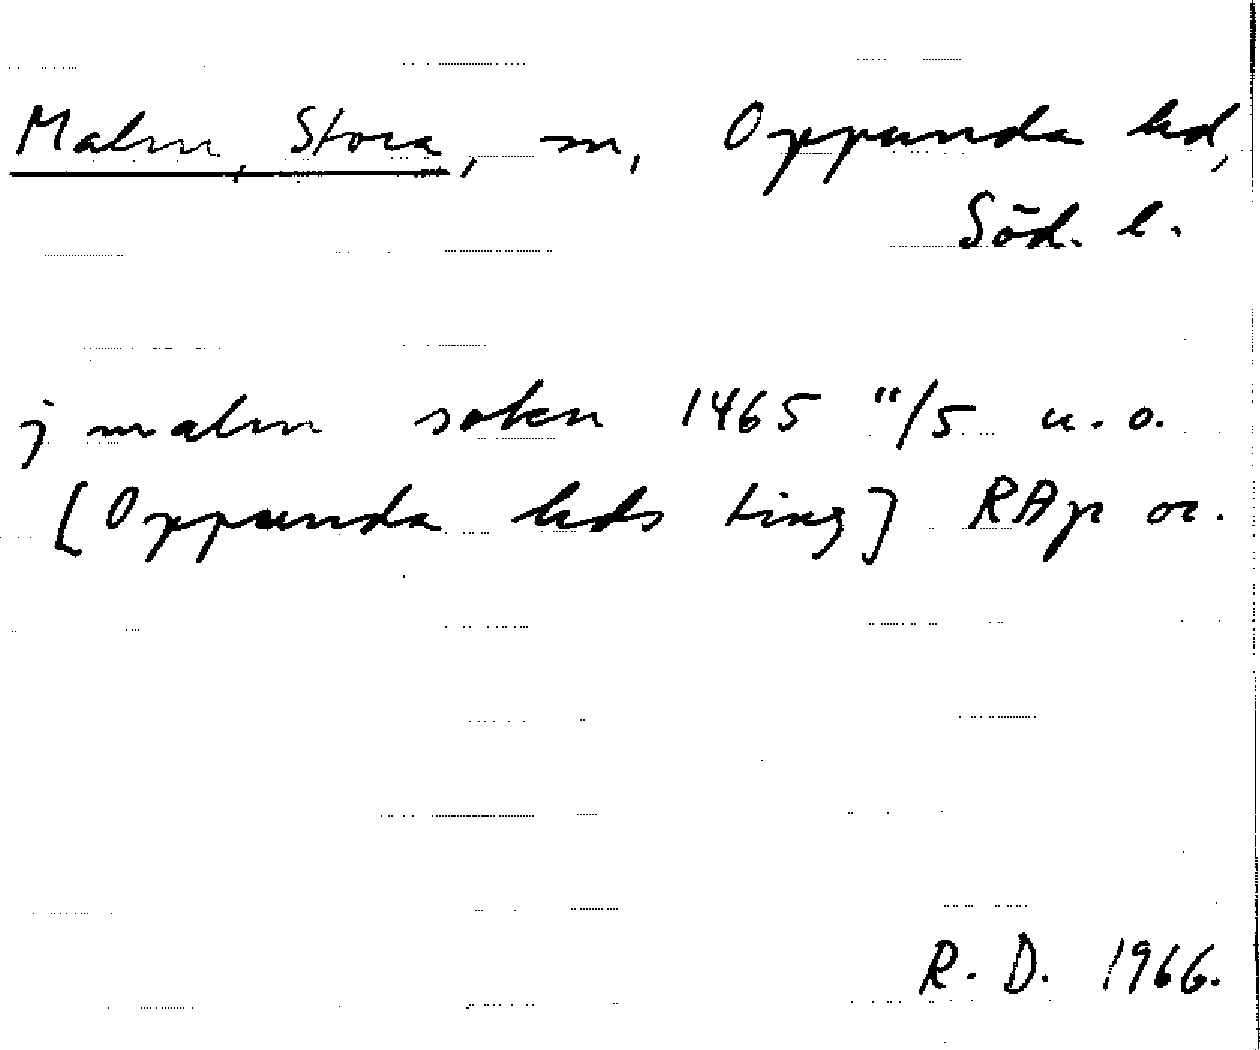 Malm, Stora, sn, Oppunda hd,
Söd. l.
j malm sokn 1465 11/5 u. o.
[Oppunda hds ting] RAp or.
R. D. 1966.